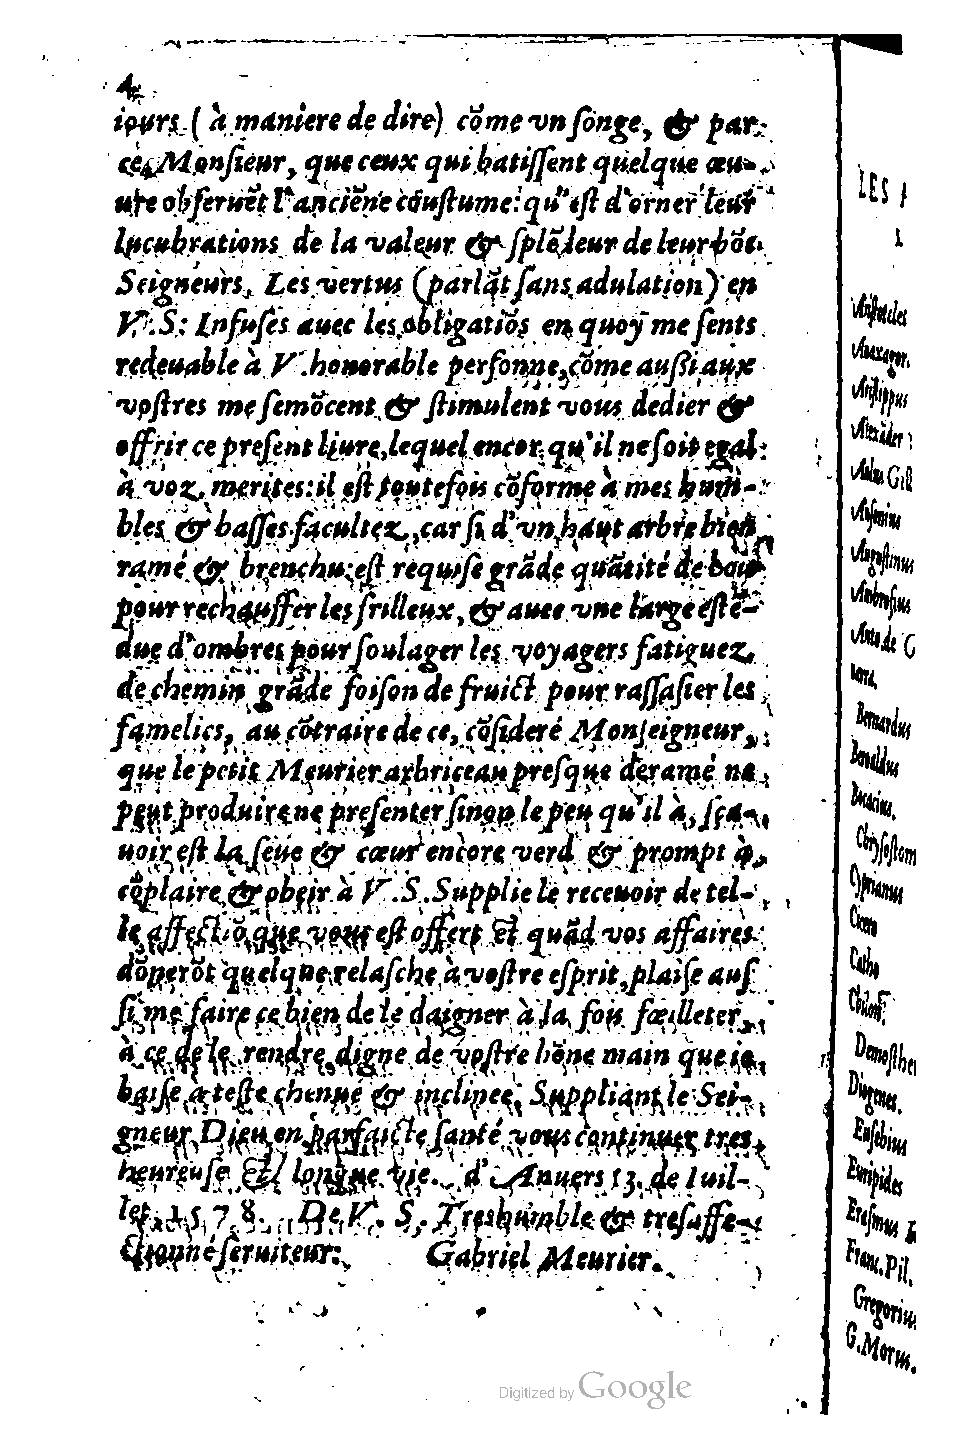 4
iours (à maniere de dire) cõme vn ſonge, & par-
ce, Monſieur, que ceux qui batiſſent quelque œu-
ure obſeruẽt l'anciẽne couſtume: qu'eſt d'orner leur
lucubrations de la valeur & ſplẽdeur de leur bõs
Seigneurs, Les vertus (parlãt ſans adulation) en
V. S: Infuſes auec les obligatiõs en quoy me ſents
redeuable à V. honorable perſonne, cõme auſſi aux
voſtres me ſemõcent & ſtimulent vous dedier &
offrir ce preſent liure, lequel encor qu'il ne ſoit egal
à voz merites: il eſt toutefois cõforme à mes hum-
bles & baſſes facultez, car ſi d'vn haut arbre bien
ramé & brenchu eſt requiſe grãde quãtité de bois
pour rechauffer les frilleux, & auec vne large eſtẽ-
due d'ombres pour ſoulager les voyagers fatiguez
de chemin grãde foiſon de fruict pour raſſaſier les
famelics, au cõtraire de ce, cõſideré Monſeigneur,
que le petit Meurier arbriceau preſque deramé ne
peut produire ne preſenter ſinon le peu qu'il à, ſça-
uoir eſt la ſeue & cœur encore verd & prompt à
cõplaire & obeir à V. S. Supplie le receuoir de tel-
le affectiõ que vous eſt offert Et quãd vos affaires
dõnerõt quelque relaſche à voſtre eſprit, plaiſe auſ
ſi me faire ce bien de le daigner à la fois fœilleter,
à ce de le rendre digne de voſtre bõne main que ie
baiſe à teſte chenue & inclinee, Suppliant le Sei-
gneur Dieu en parfaicte ſanté vous continuer tres
heureuſe Et longue vie. d'Anuers 13. de Iuil-
let 1578. De V. S. Treshumble & treſaffe-
ctionné ſeruiteur: Gabriel Meurier.
LES
Ariſtoteles
Anaxagor.
Ariſtippus
Alexãder
Aulus Gell
Auſonius
Auguſtinus
Ambroſius
Anto. de G
Bernardus
Beroaldus
Bocacius.
Chryſoſtom
Cyprianus
Cicero
Catho
Chilon.
Demoſthe
Diogenes.
Euſebius
Euripides
Eraſmus
Franc. Pil.
Gregorius
G. Morus.
Digitized by Google